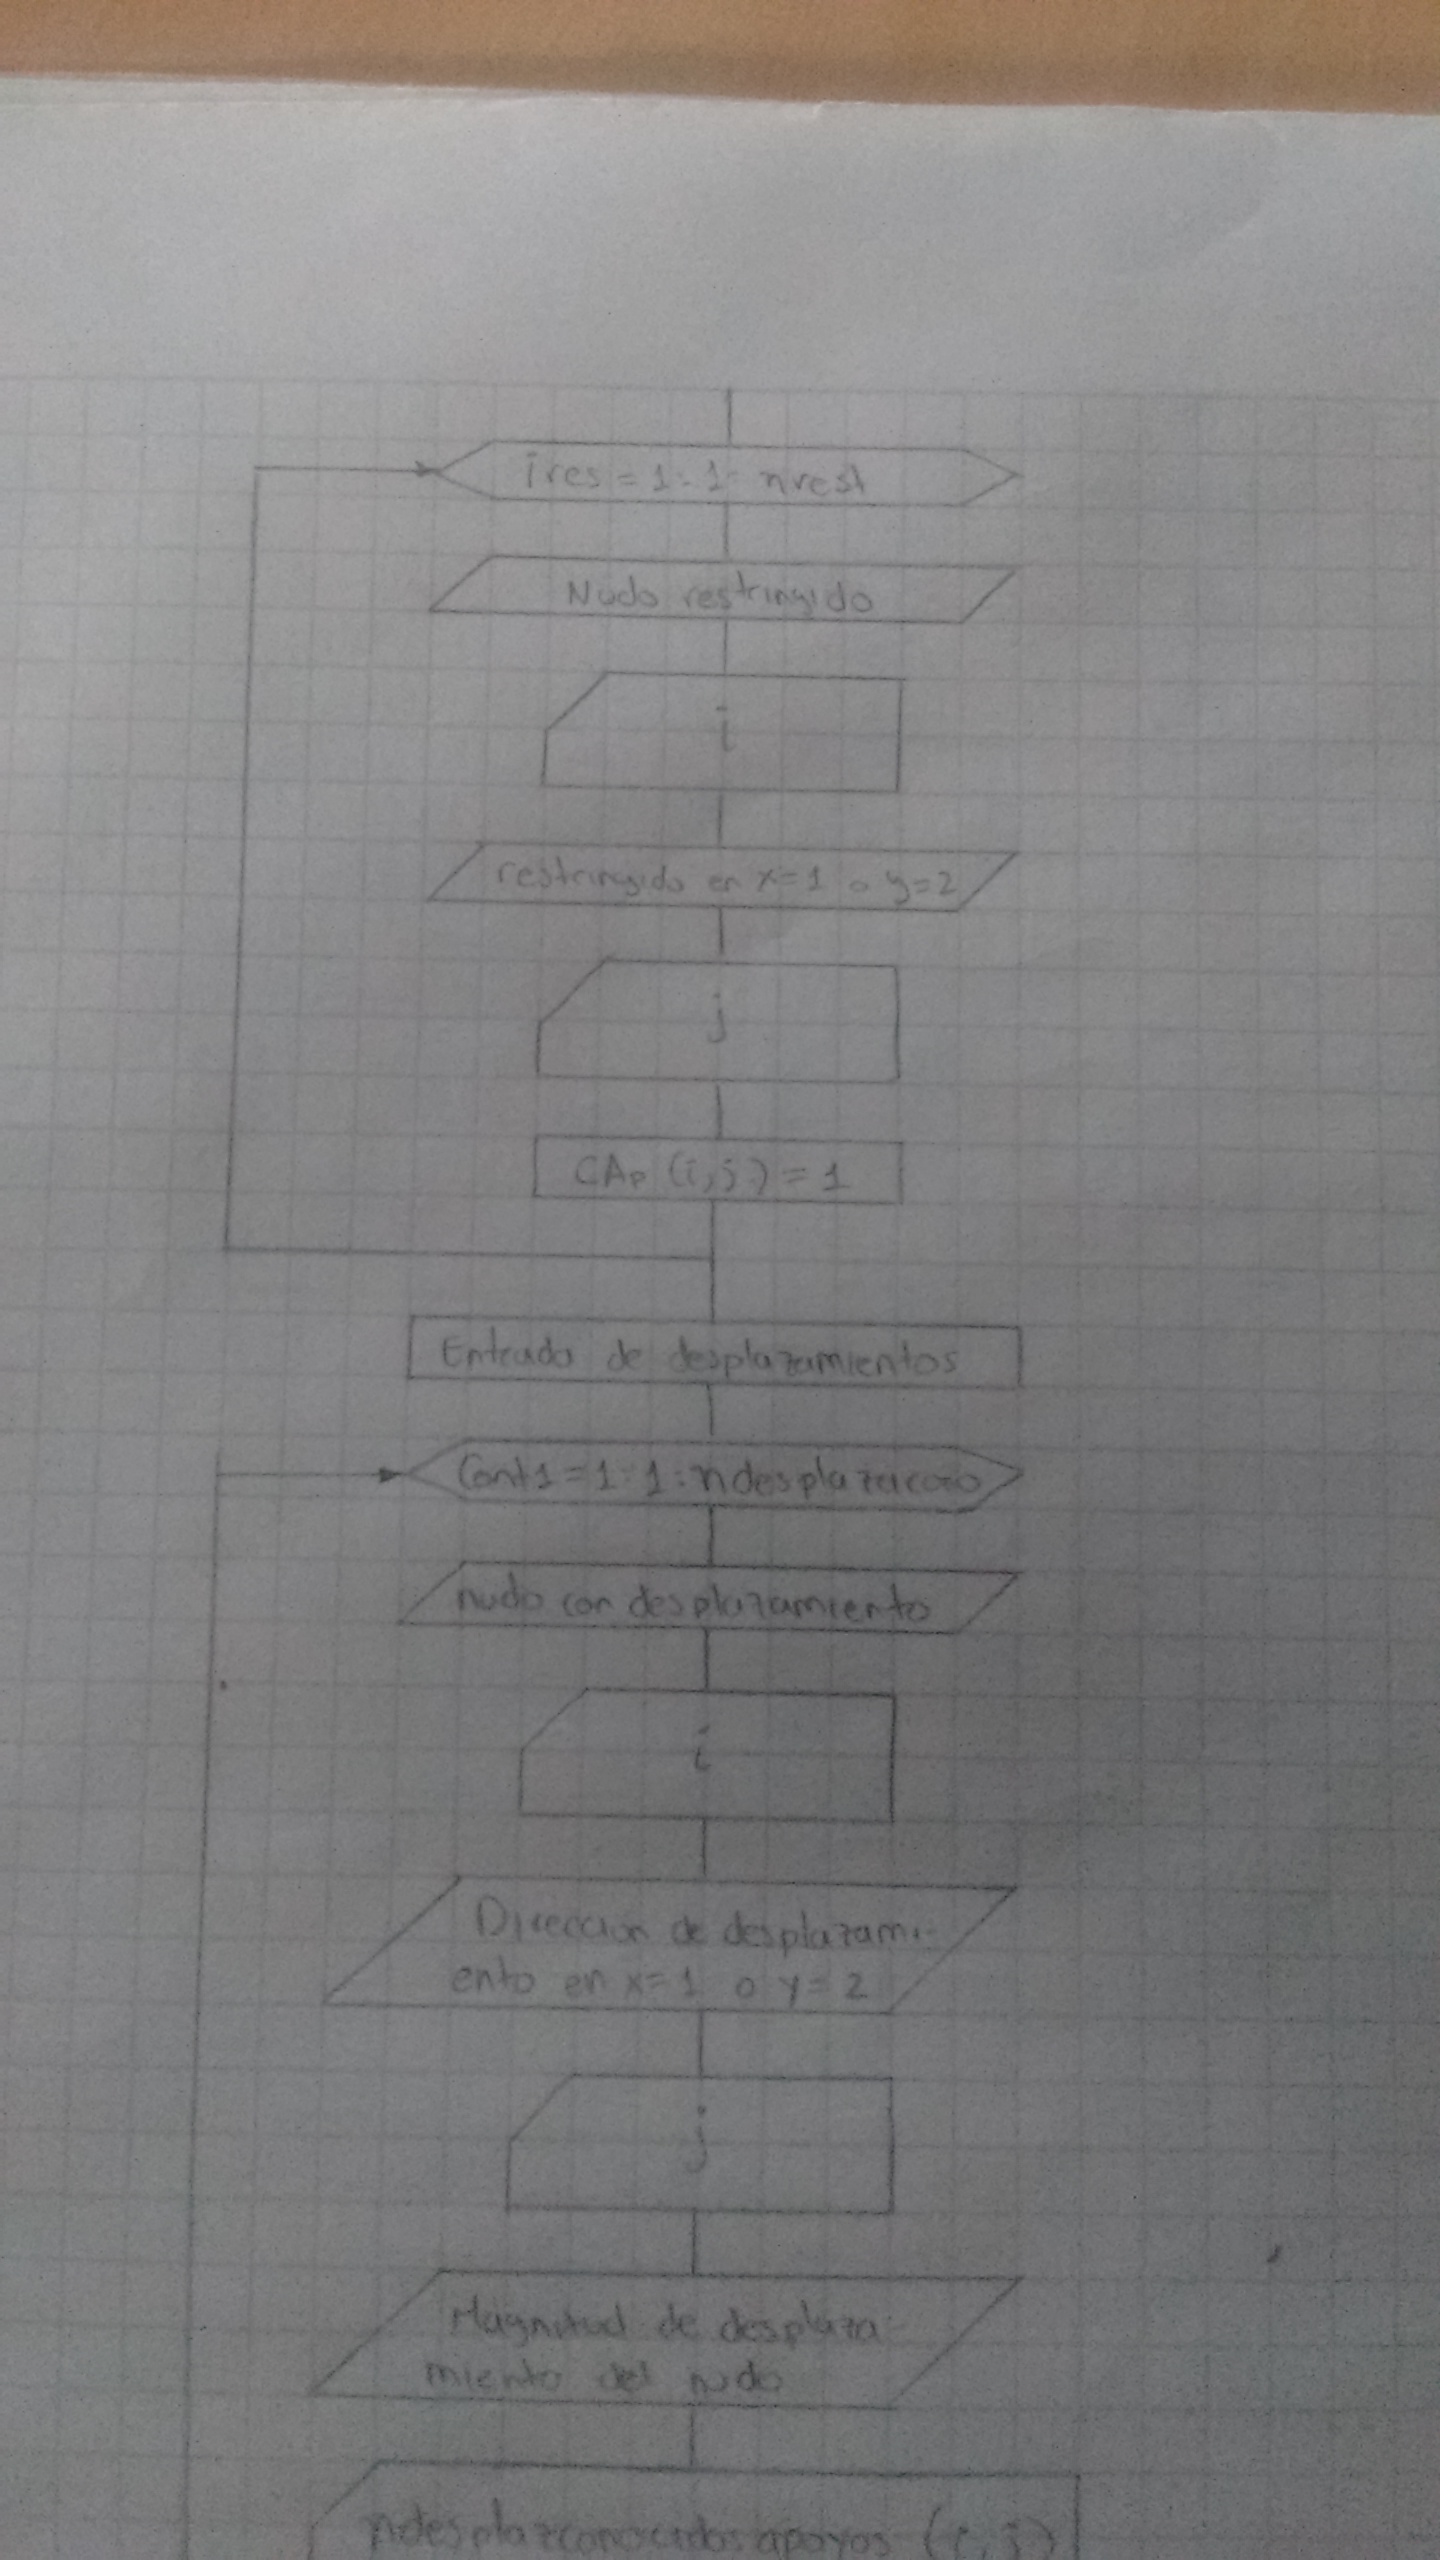 ires = 1:1: nrest
Nudo restringido
i
restringido en x=1 o y=2
j
CAp (i,j) = 1
Entrada de desplazamientos
Cont1 = 1:1:
nudo con desplazamiento
i
Direccion de desplazami-
ento en x=1 o y=2
j
Magnitud de desplaza
miento del nudo
ndesplazconocidosapoyos (i,j)